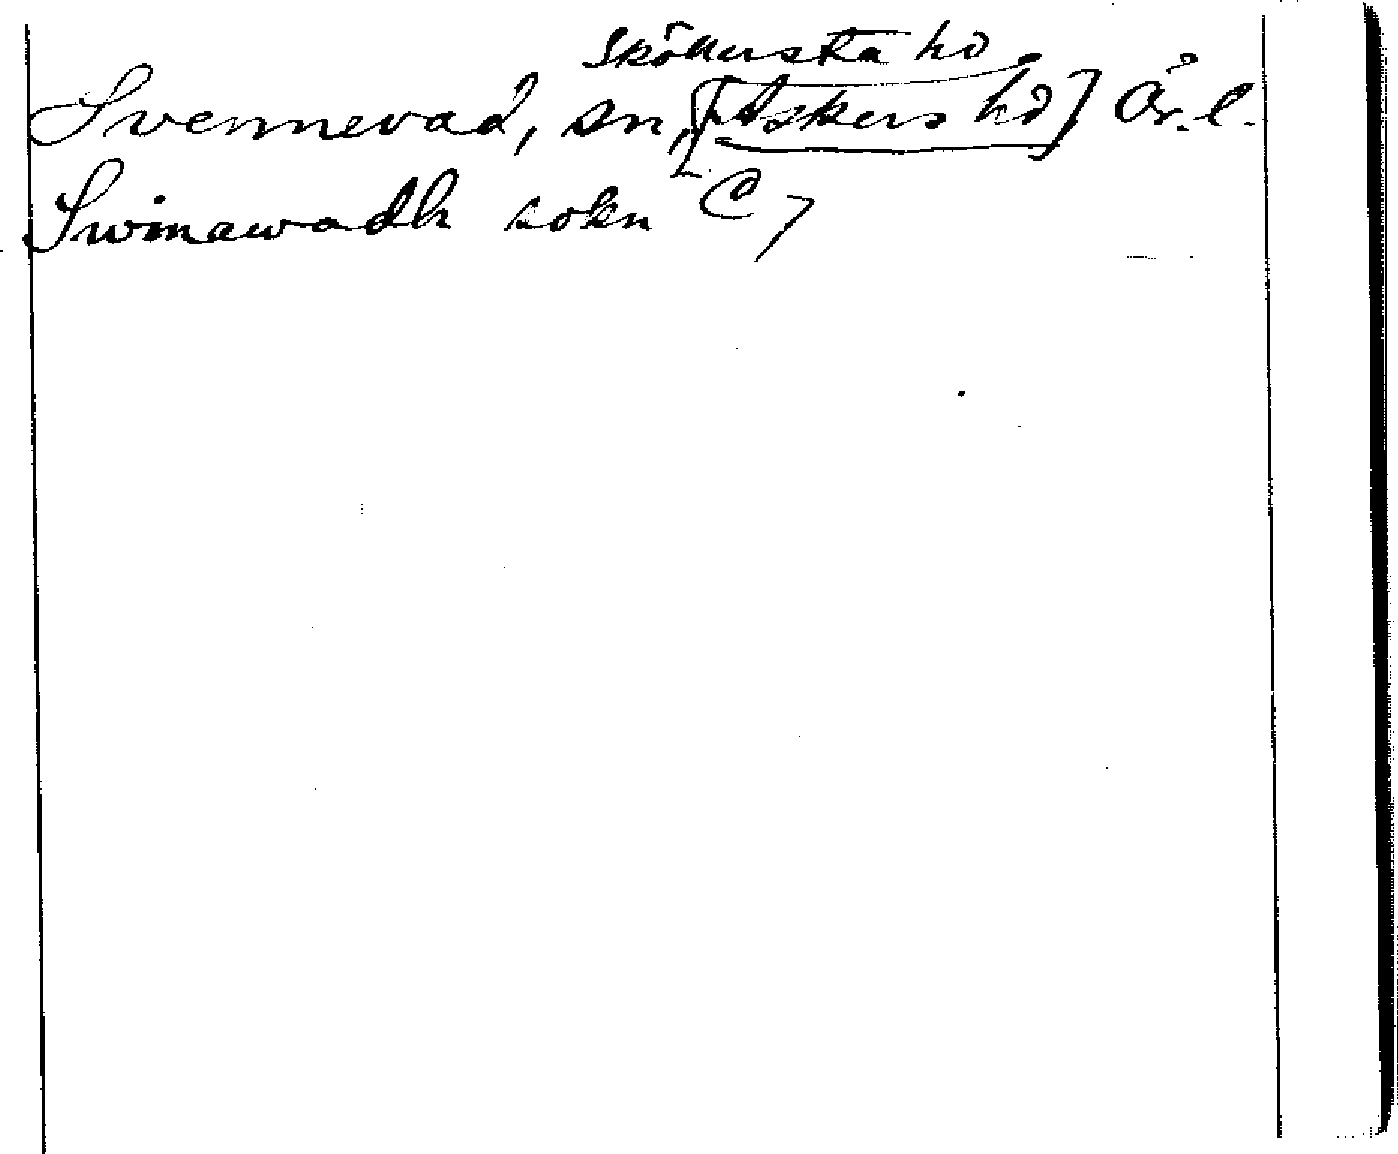 Sköllersta hd
Svennevad, sn, [Askers hd] Ör. l.
Swinawadh sokn C 7